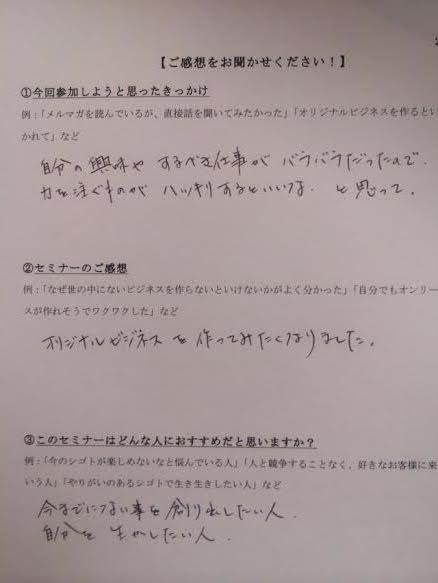 【ご感想をお聞かせください！】
①今回参加しようと思ったきっかけ
例：「メルマガを読んでいるが、直接話を聞いてみたかった」「オリジナルビジネスを作るとい
かれて」など
自分の興味や するべき仕事が バラバラだったので、
力を注ぐものが ハッキリするといいな、と思って。
②セミナーのご感想
例：「なぜ世の中にないビジネスを作らないといけないかがよく分かった」「自分でもオンリー
スが作れそうでワクワクした」など
オリジナルビジネスを作ってみたくなりました。
③このセミナーはどんな人におすすめだと思いますか？
例：「今のシゴトが楽しめないなと悩んでいる人」「人と競争することなく、好きなお客様に来
いう人」「やりがいのあるシゴトで生き生きしたい人」など
今までにない事を創り出したい人。
自分を生かしたい人。